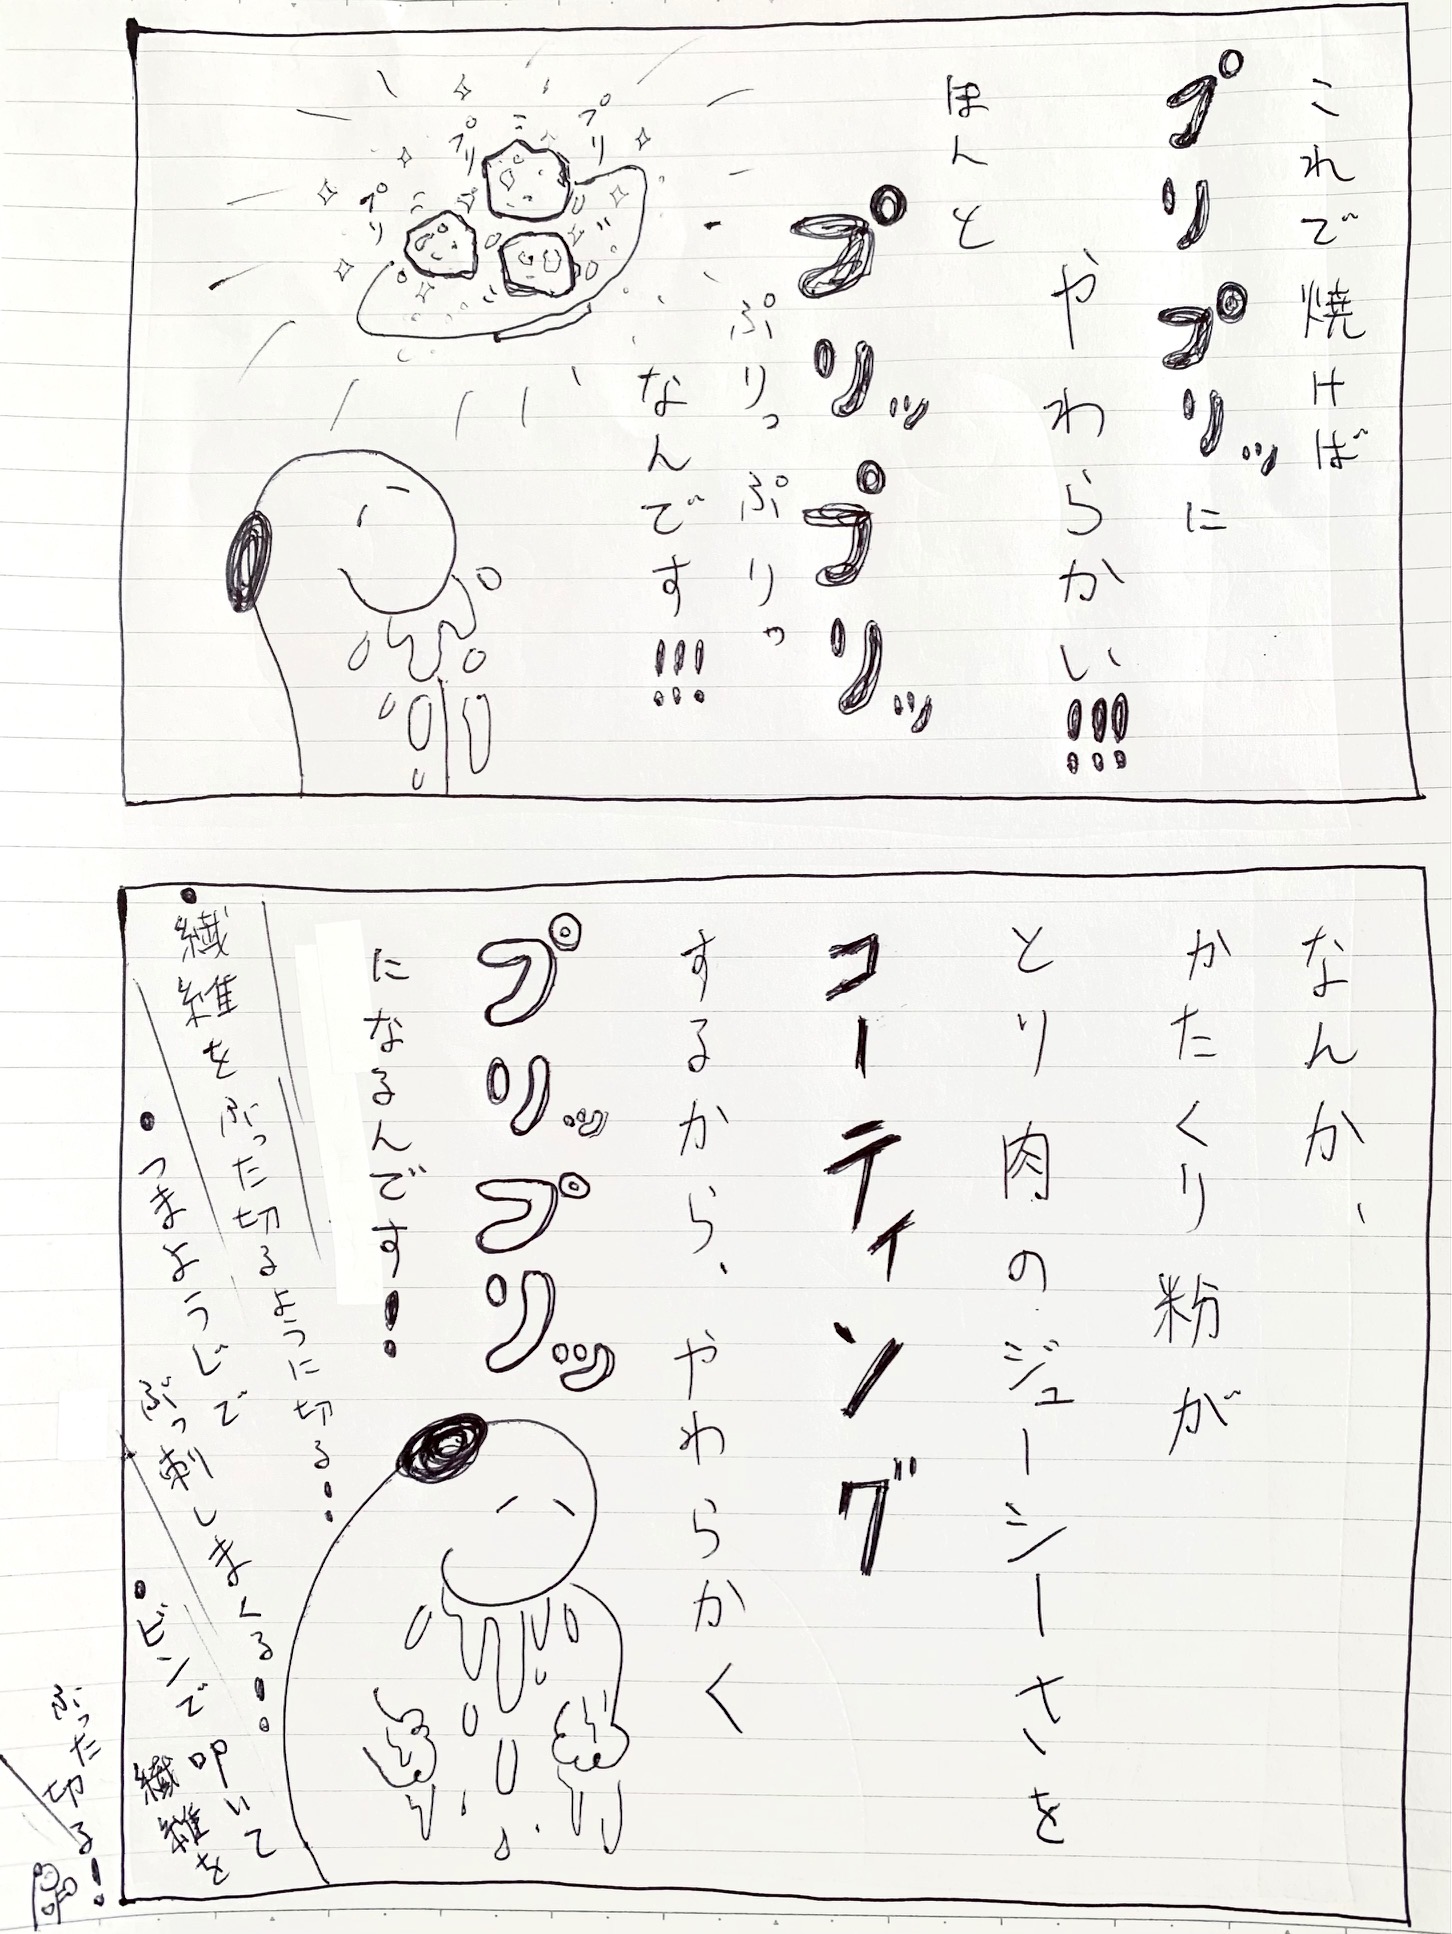 これで焼けば
プリプリッに
やわらかい!!!
ほんと
プリッップリッッ
ぷりっぷりっ
なんです!!!
プリ
プリ
プリ
なんか、
かたくり粉が
とり肉のジューシーさを
コーティング
するから、やわらかく
プリッップリッッ
になるんです!
・繊維を
ぶった切るように切る!
・つまようじで
ぶっ刺しまくる!
・ビンで叩いて
繊維を
ぶった切る!